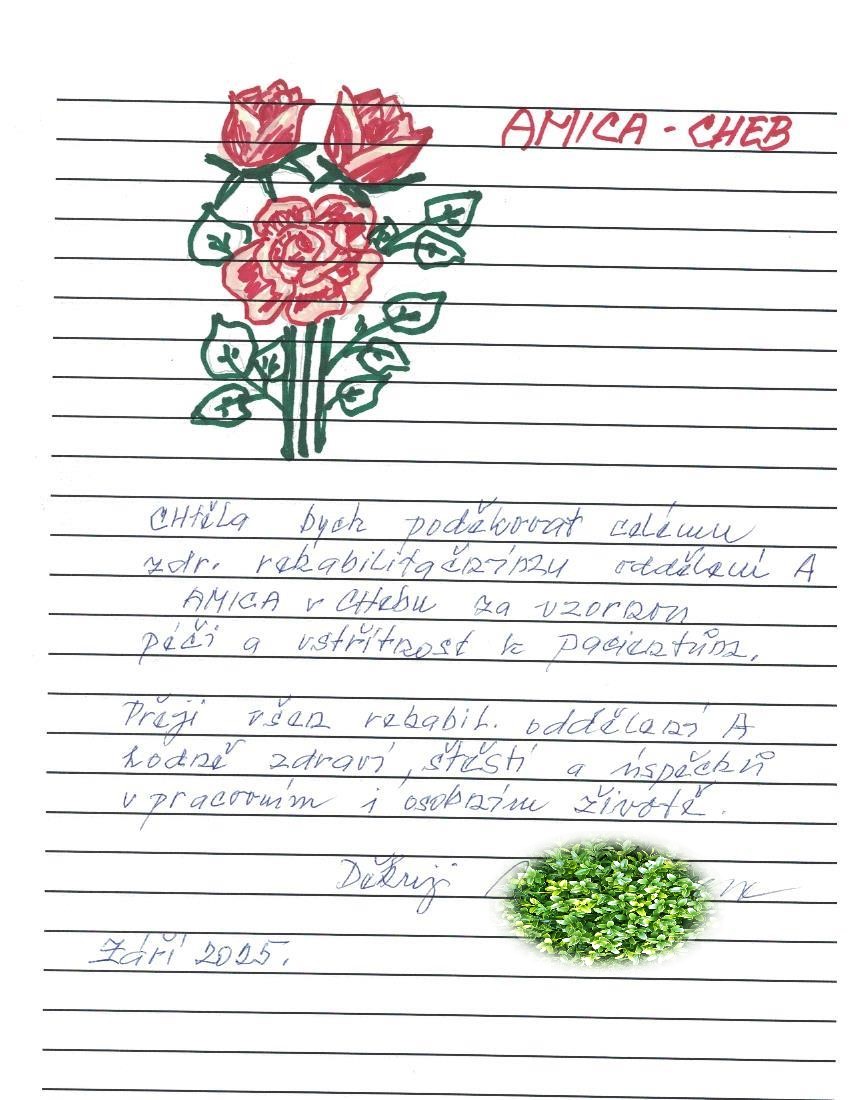 AMICA - CHEB
CHtěla bych poděkovat celému
zdr. rehabilitačnímu oddělení A
AMICA v CHebu za vzornou
péči a vstřítnost k pacientům.
Přeji všem rehabil. oddělení A
hodně zdraví, štěstí a úspěchů
v pracovním i osobním životě.
Děkuji
Září 2025.